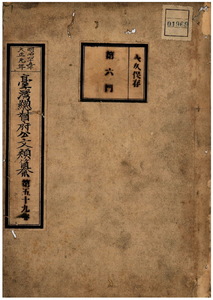 明治四十五年
大正元年
臺灣總督府公文類纂 第五十九卷
永久保存
第六門